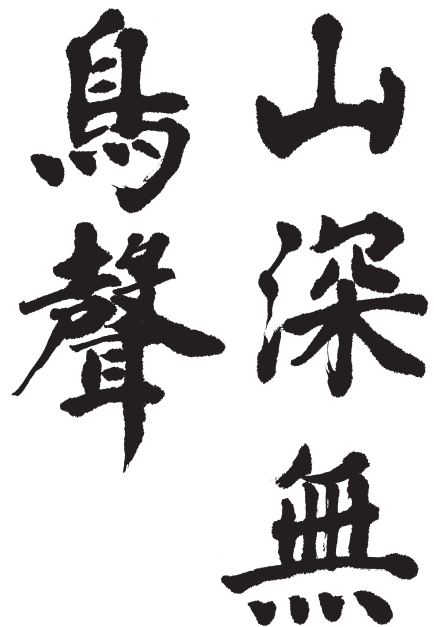 山深無
鳥聲